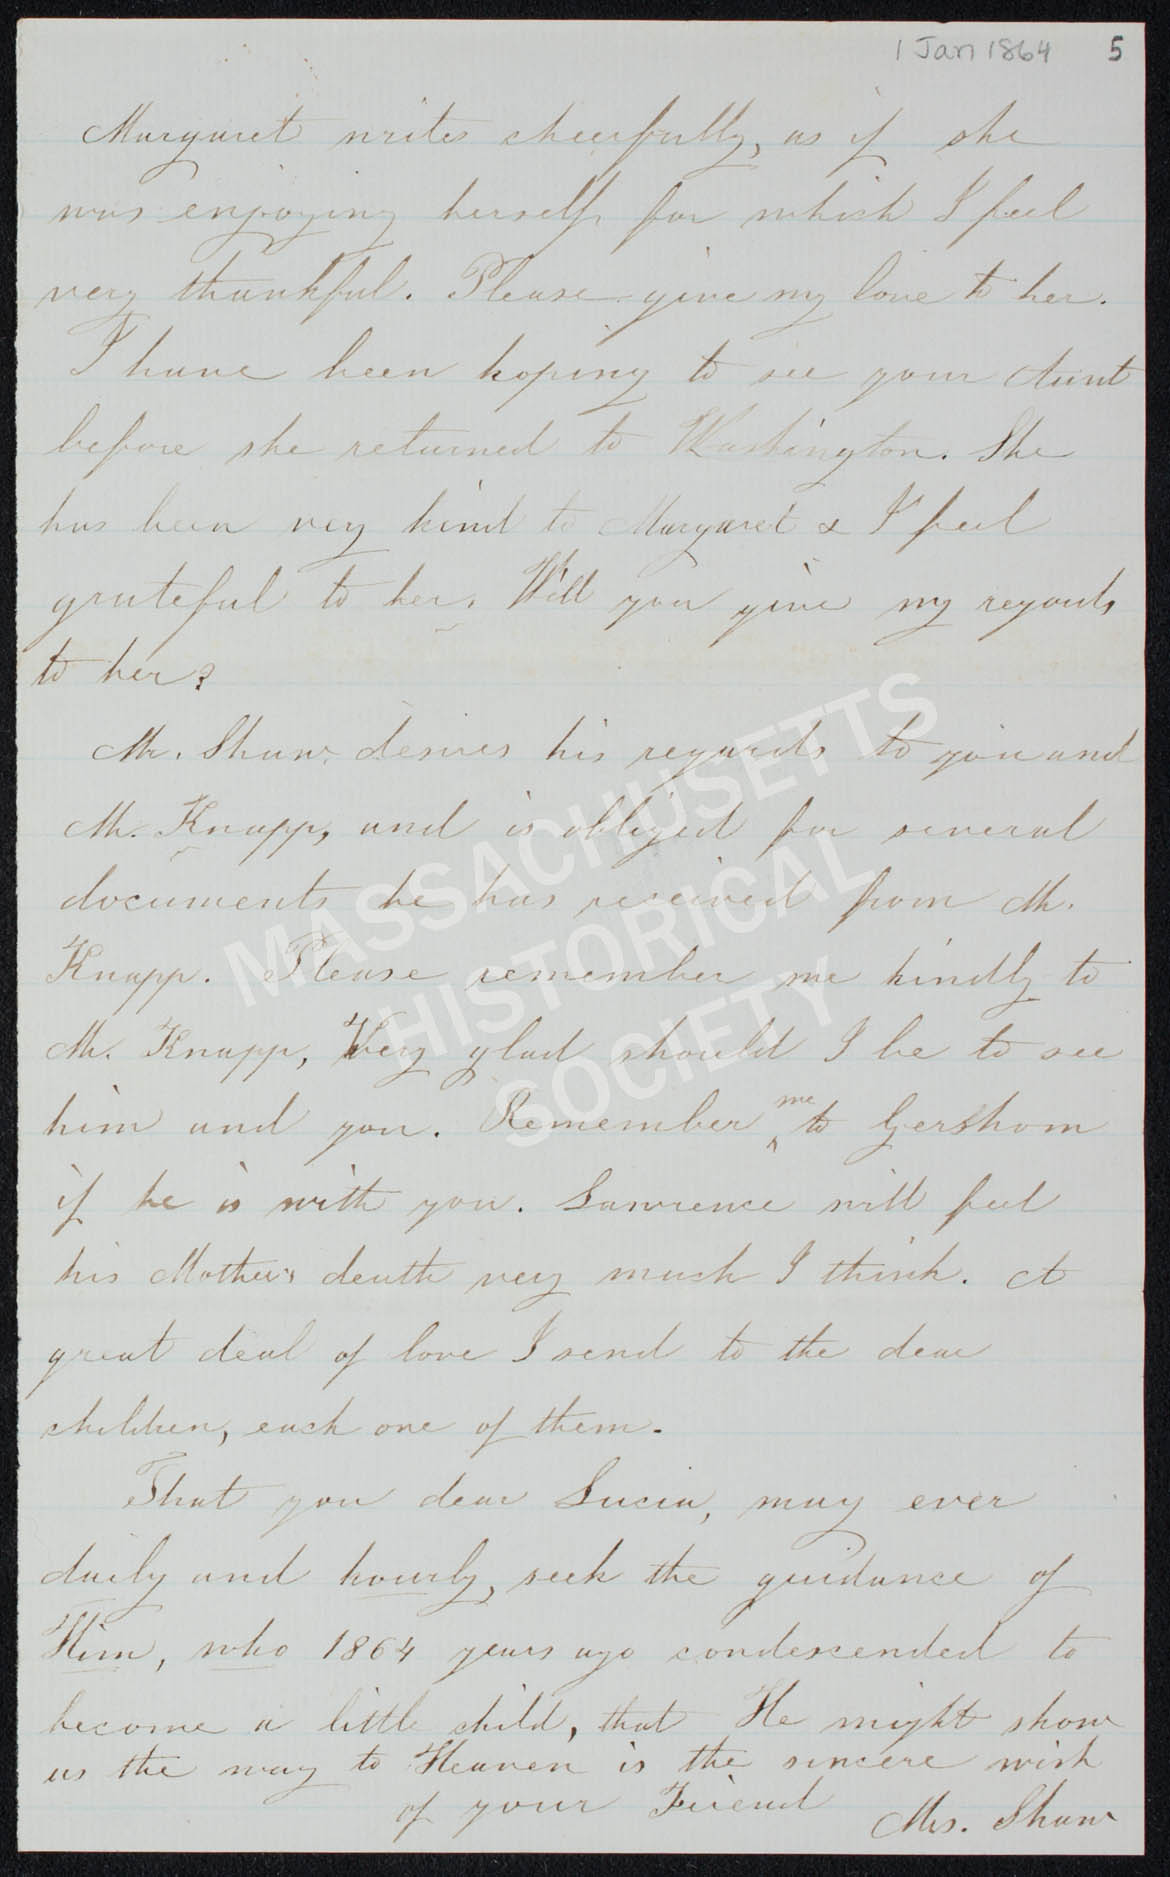 1 Jan 1864 5
Margaret writes cheerfully, as if she
was enjoying herself, for which I feel
very thankful. Please give my love to her.
I have been hoping to see your Aunt
before she returned to Washington. She
has been very kind to Margaret & I feel
grateful to her. Will you give my regards
to her?
Mr. Shaw desires his regards to you and
Mr. Knapp, and is obliged for several
documents he has received from Mr.
Knapp. Please remember me kindly to
Mr. Knapp, Very glad should I be to see
him and you. Remember me to Gershom
if he is with you. Lawrence will feel
his Mother's death very much I think. A
great deal of love I send to the dear
children, each one of them.
That you dear Lucia, may ever
daily and hourly, seek the guidance of
Him, who 1864 years ago condescended to
become a little child, that He might show
us the way to Heaven is the sincere wish
of your Friend Mrs. Shaw
MASSACHUSETTS
HISTORICAL
SOCIETY